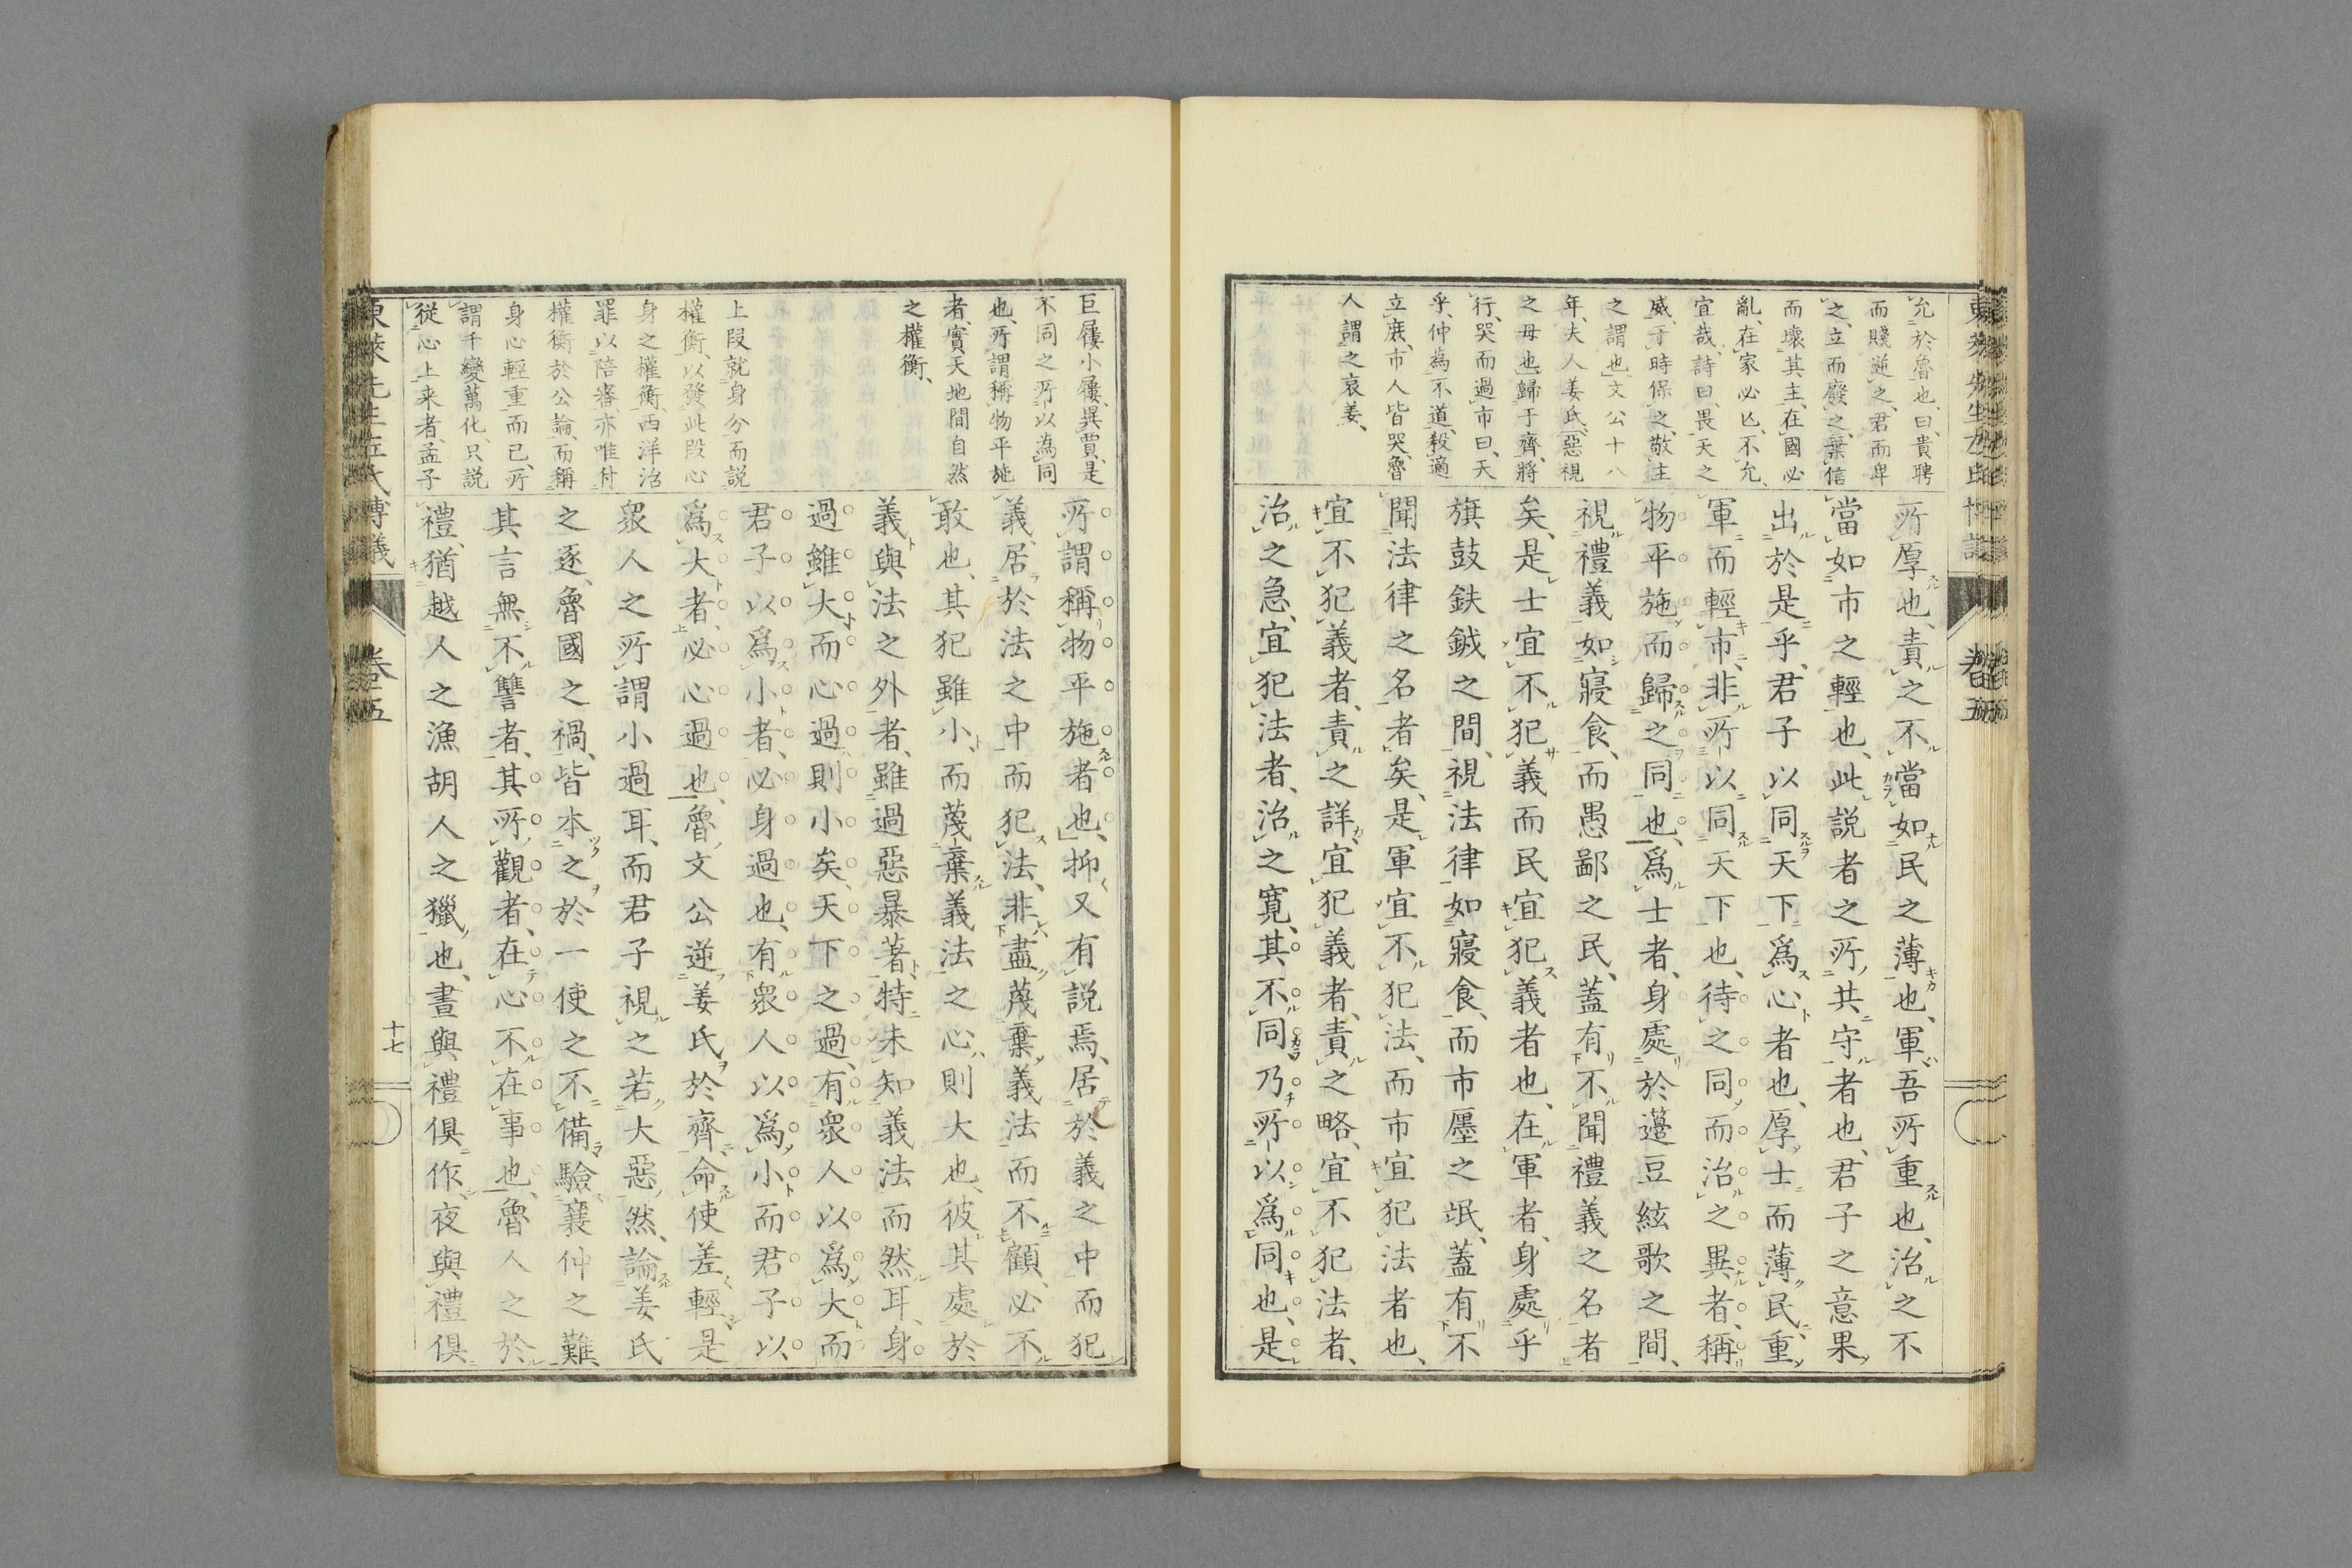 允於魯也、曰、貴聘
而賤逆之、君而卑
之、立而廢之、棄信
而壞其主、在國必
亂、在家必亡、不允、
宜哉、詩曰、畏天之
威、于時保之、敬主
之謂也、文公十八
年、夫人姜氏、惡視
之母也、歸于齊、將
行、哭而過市曰、天
乎、仲爲不道、殺適
立庶、市人皆哭、魯
人謂之哀姜、
所厚也、責之不當如民之薄也、軍吾所重也、治之不
當如市之輕也、此説者之所共守者也、君子之意果
出於是乎、君子以同天下爲心者也、厚士而薄民、重
軍而輕市、非所以同天下也、待之同而治之異者、稱
物平施而歸之同也、爲士者、身處於籩豆絃歌之間、
視禮義如寢食、而愚鄙之民、蓋有不聞禮義之名者
矣、是士宜不犯義而民宜犯義者也、在軍者、身處乎
旗鼓鈇鉞之間、視法律如寢食、而市廛之氓、蓋有不
聞法律之名者矣、是軍宜不犯法、而市宜犯法者也、
宜不犯義者、責之詳、宜犯義者、責之略、宜不犯法者、
治之急、宜犯法者、治之寛、其不同乃所以爲同也、是
巨屨小屨、異賈、是
不同之所以爲同
也、所謂稱物平施
者、實天地間自然
之權衡、
上段就身分而説
權衡、以發此段心
身之權衡、西洋治
罪以陪審、亦唯付
權衡於公論、而稱
身心輕重而已、所
謂千變萬化、只説
從心上来者、孟子
所謂稱物平施者也、抑又有説焉、居於義之中而犯
義、居於法之中而犯法、非盡蔑棄義法而不顧、必不
敢也、其犯雖小、而蔑棄義法之心、則大也、彼其處於
義與法之外者、雖過惡暴著、特未知義法而然耳、身
過雖大而心過則小矣、天下之過、有衆人以爲大而
君子以爲小者、必身過也、有衆人以爲小而君子以
爲大者、必心過也、魯文公逆姜氏於齊、命使差輕、是
衆人之所謂小過耳、而君子視之若大惡然、論姜氏
之逐、魯國之禍、皆本之於一使之不備、驗襄仲之難、
其言無不讐者、其所觀者、在心不在事也、魯人之於
禮、猶越人之漁胡人之獵也、晝與禮俱作、夜與禮俱
東萊先生左氏博議
卷五
十七